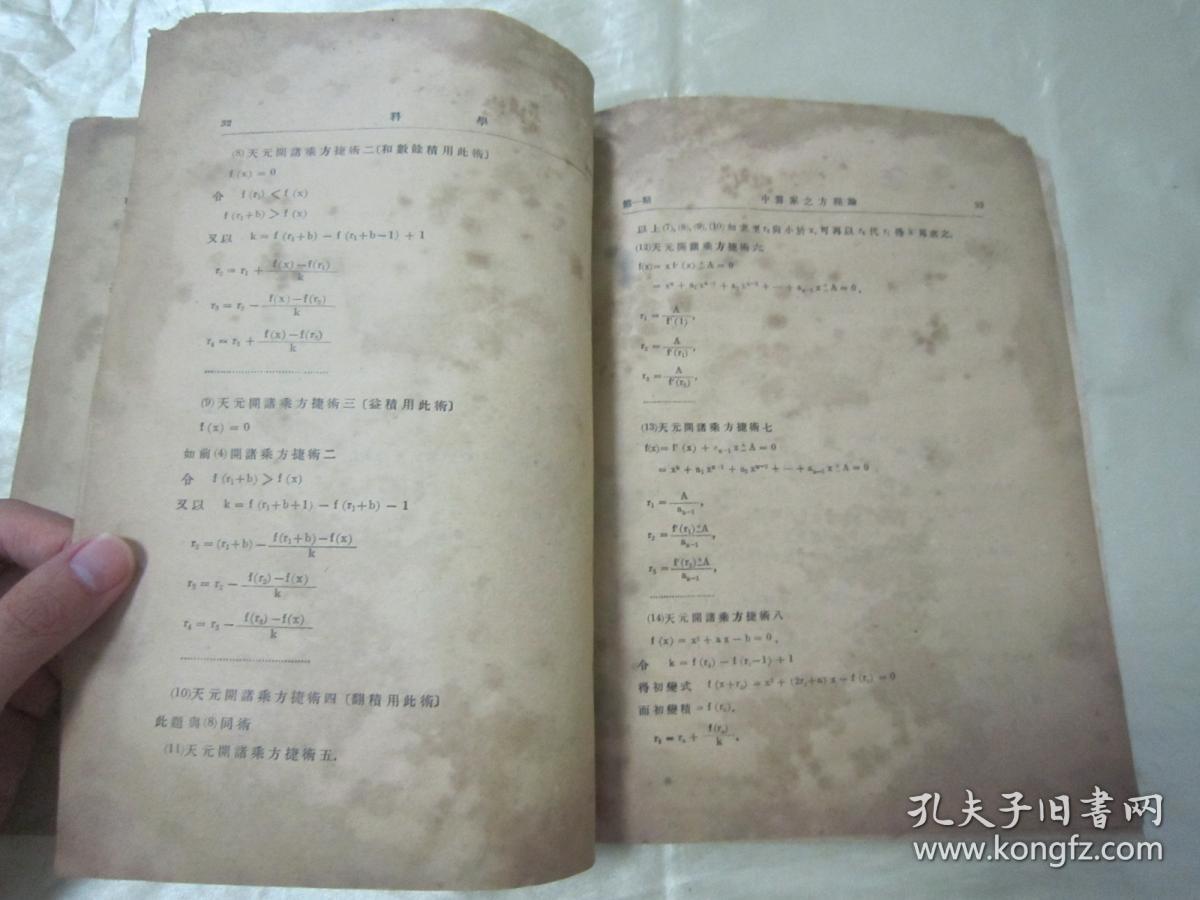 32 科學
(8)天元開諸乘方捷術二〔和數餘積用此術〕
f(x)=0
令 f(r₁)<f(x)
f(r₁+b)>f(x)
又以 k=f(r₁+b)−f(r₁+b−1)+1
r₂=r₁+ f(x)−f(r₁)/k
r₃=r₂− f(x)−f(r₂)/k
r₄=r₃+ f(x)−f(r₃)/k
(9)天元開諸乘方捷術三〔益積用此術〕
f(x)=0
如前(4)開諸乘方捷術二
令 f(r₁+b)>f(x)
又以 k=f(r₁+b+1)−f(r₁+b)−1
r₂=(r₁+b)− f(r₁+b)−f(x)/k
r₃=r₂− f(r₂)−f(x)/k
r₄=r₃− f(r₃)−f(x)/k
(10)天元開諸乘方捷術四〔翻積用此術〕
此題與(8)同術
(11)天元開諸乘方捷術五.
第一期 中算家之方程論 33
以上(7),(8),(9),(10)如求至
(12)天元開諸乘方捷術六
f(x)=x f'(x)±A=0
=xⁿ+a₁xⁿ⁻¹+a₂xⁿ⁻²+⋯+aₙ₋₁x±A=0,
r₁= A/f'(1),
r₂= A/f'(r₁),
r₃= A/f'(r₂),
(13)天元開諸乘方捷術七
f(x)=f'(x)+aₙ₋₁x±A=0
=xⁿ+a₁xⁿ⁻¹+a₂xⁿ⁻²+⋯+aₙ₋₁x±A=0
r₁= A/aₙ₋₁,
r₂= f'(r₁)±A/aₙ₋₁,
r₃= f'(r₂)±A/aₙ₋₁,
(14)天元開諸乘方捷術八
f(x)=x²+ax−b=0,
令
得初變式
而初變積
孔夫子旧书网
www.kongfz.com